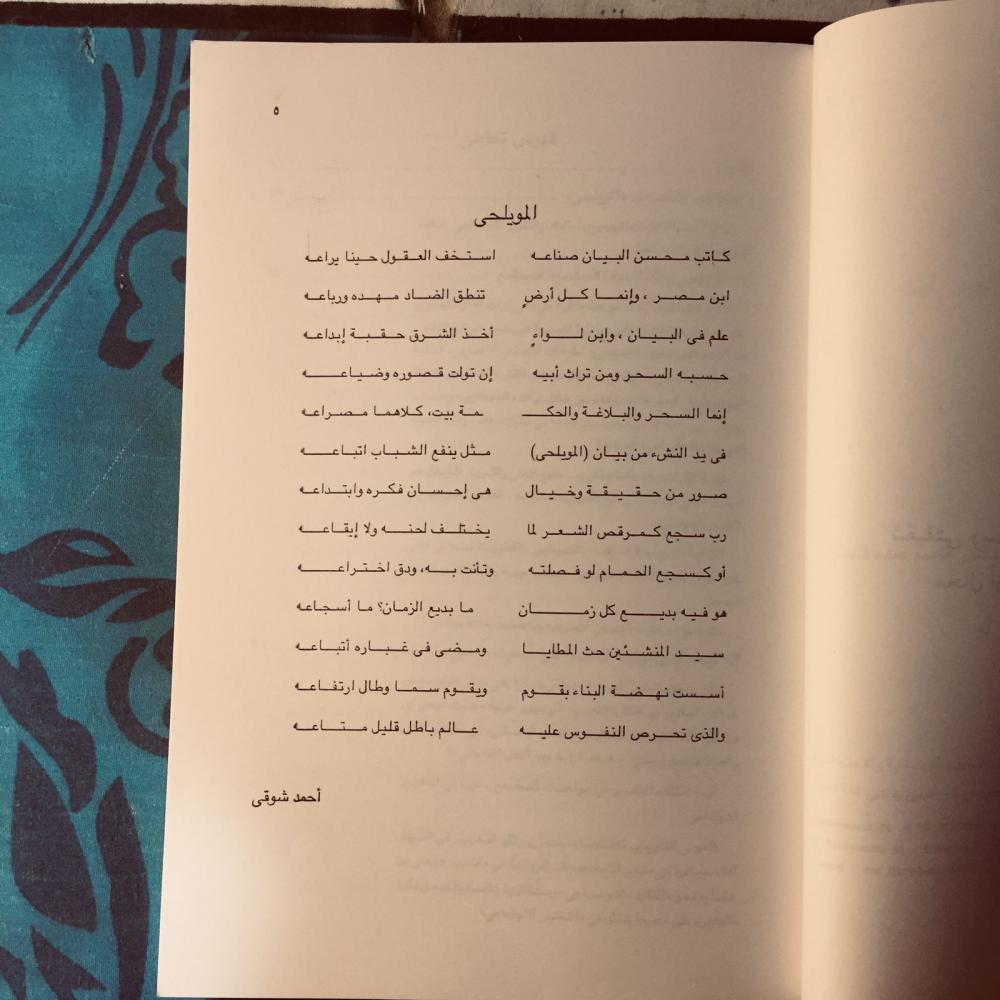 ٥
المويلحى
كاتب محسن البيان صناعه استخف العقول حينا يراعه
ابن مصر ، وإنما كل أرضٍ تنطق الضاد مهده ورباعه
علم فى البيان ، وابن لواءٍ أخذ الشرق حقبة إبداعه
حسبه السحر ومن تراث أبيه إن تولت قصوره وضياعه
إنما السحر والبلاغة والحكـ ـمة بيت، كلاهما مصراعه
فى يد النشء من بيان (المويلحى) مثل ينفع الشباب اتباعه
صور من حقيقة وخيال هى إحسان فكره وابتداعه
رب سجع كمرقص الشعر لما يختلف لحنه ولا إيقاعه
أو كسجع الحمام لو فصلته وتأنت به، ودق اختراعه
هو فيه بديع كل زمان ما بديع الزمان؟ ما أسجاعه
سيد المنشئين حث المطايا ومضى فى غباره أتباعه
أسست نهضة البناء بقوم ويقوم سما وطال ارتفاعه
والذى تحرص النفوس عليه عالم باطل قليل متاعه
أحمد شوقى